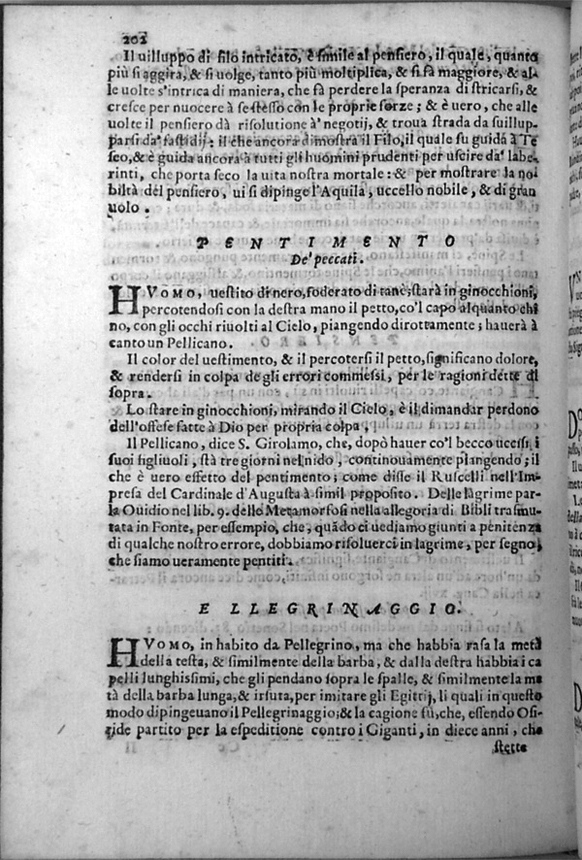 202
Il uiluppo di filo intricato, è simile al pensiero, il quale, quanto
più si aggira, & si uolge, tanto più moltiplica, & si fà maggiore, & al-
le uolte s'intrica di maniera, che fà perdere la speranza di stricarsi, &
cresce per nuocere à se stesso con le proprie forze; & è uero, che alle
uolte il pensiero dà risolutione à negotij, & troua strada da suilup-
parsi da' fastidij: il che ancora dimostra il Filo, il quale fu guida à Te
seo, & è guida ancora à tutti gli huomini prudenti per uscire da' labe-
rinti, che porta seco la uita nostra mortale: & per mostrare la no
biltà del pensiero, ui si dipinge l'Aquila, uccello nobile, & di gran
uolo.
PENTIMENTO
De' peccati.
HVOMO, uestito di nero, foderato di tanè; starà in ginocchioni,
percotendosi con la destra mano il petto, co'l capo alquanto chi
no, con gli occhi riuolti al Cielo, piangendo dirottamente; hauerà à
canto un Pellicano.
Il color del uestimento, & il percotersi il petto, significano dolore,
& rendersi in colpa degli errori commessi, per le ragioni dette di
sopra.
Lo stare in ginocchioni, mirando il Cielo, è il dimandar perdono
dell'offese fatte à Dio per propria colpa,
Il Pellicano, dice S. Girolamo, che, dopò hauer co'l becco uccisi i
suoi figliuoli, stà tre giorni nel nido, continouamente piangendo; il
che è uero effetto del pentimento; come disse il Ruscelli nell'Im-
presa del Cardinale d'Augusta à simil proposito. Delle lagrime par-
la Ouidio nel lib. 9. delle Metamorfosi nella allegoria di Bibli trasmu-
tata in Fonte, per essempio, che, quãdo ci uedjamo giunti a penitenza
di qualche nostro errore, dobbiamo risoluerci in lagrime, per segno,
che siamo ueramente pentiti.
ELLEGRINAGGIO.
HVOMO, in habito da Pellegrino, ma che habbia rasa la metà
della testa, & similmente della barba, & dalla destra habbia i ca
pelli lunghissimi, che gli pendano sopra le spalle, & similmente la me
tà della barba lunga, & irsuta, per imitare gli Egittij, li quali in questo
modo dipingeuano il Pellegrinaggio; & la cagione fù, che, essendo Osi-
ride partito per la espeditione contro i Giganti, in diece anni, che
stette